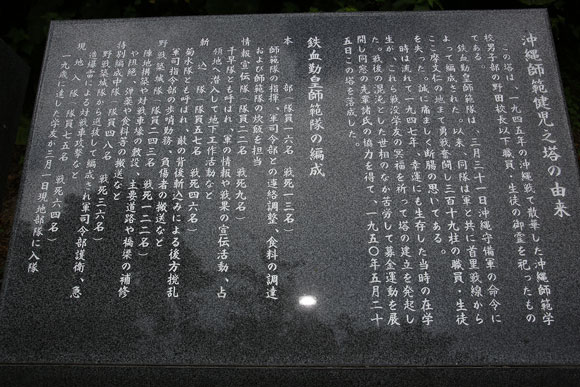 沖縄師範健児之塔の由来
この塔は、一九四五年の沖縄戦で散華した沖縄師範学
校男子部の野田校長以下職員、生徒の御霊を祀ったもの
である。
鉄血勤皇師範隊は、三月三十一日沖縄守備軍の命令に
よって編成された。以来、同隊は軍と共に首里戦線から
ここ摩文仁の地まで勇戦奮闘し三百十九柱の職員・生徒
を失った。誠に痛ましく断腸の思いである。
時は流れて一九四七年、幸運にも生存した当時の在学
生が、これら戦没学友の冥福を祈って塔の建立を発起し
た。戦後の混沌とした世相のなか苦労して募金運動を展
開し同窓の先輩諸氏の協力を得て、一九五〇年五月二十
五日この塔を落成した。
鉄血勤皇師範隊の編成
本 部(隊員一六名 戦死一三名)
師範隊の指揮、軍司令部との連絡調整、食料の調達
および師範隊の炊飯を担当
情報宣伝隊(隊員二二名 戦死九名)
千早隊とも呼ばれ、軍の情報や戦果の宣伝活動、占
領地へ潜入して地下工作活動など
斬 込 隊(隊員五七名 戦死四六名)
菊水隊とも呼ばれ、敵の背後斬込みによる後方撹乱
軍司令部の歩哨勤務、負傷者の搬送など
野戦築城隊(隊員二四三名 戦死一二二名)
陣地構築や対戦車壕の敷設、主要道路や橋梁の補修
や担架、弾薬や食料等の搬送など
特別編成中隊(隊員四八名 戦死三六名)
野戦築城隊から選抜して編成され軍司令部護衛、急
造爆雷による対戦車攻撃など
現 地 入 隊(隊員七五名 戦死六四名)
一九歳に達した学友が三月一日現地部隊に入隊